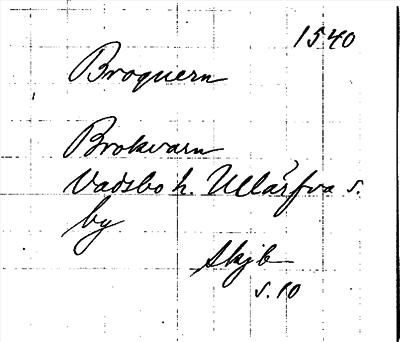 1540
Broquern
Brokvarn
Vadsbo h. Ullärfva s.
by
Skjb
s. 10